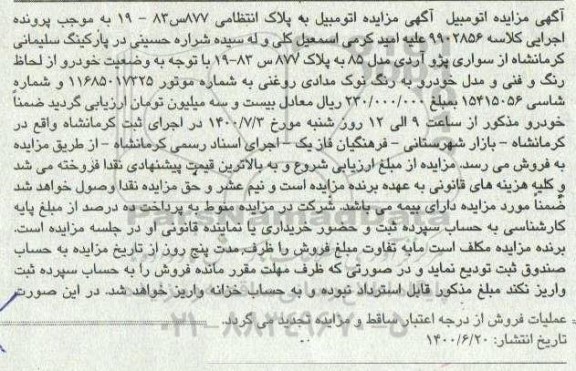 آگهی مزایده اتومبیل آگهی مزایده اتومبیل به پلاک انتظامی ۸۷۷س۸۳ - ۱۹ به موجب پرونده
اجرایی کلاسه ۹۹۰۲۸۵۶ علیه امید کرمی اسمعیل کلی و له سیده شراره حسینی در پارکینگ سلیمانی
کرمانشاه از سواری پژو آردی مدل ۸۵ به پلاک ۸۷۷ س ۸۳-۱۹ با توجه به وضعیت خودرو از لحاظ
رنگ و فنی و مدل خودرو به رنگ نوک مدادی روغنی به شماره موتور ۱۱۶۸۵۰۱۷۳۲۵ و شماره
شاسی ۱۵۴۱۵۰۵۶ بمبلغ ۲۳۰/۰۰۰/۰۰۰ ریال معادل بیست و سه میلیون تومان ارزیابی گردید ضمناً
خودرو مذکور از ساعت ۹ الی ۱۲ روز شنبه مورخ ۱۴۰۰/۷/۳ در اجرای ثبت کرمانشاه واقع در
کرمانشاه - بازار شهرستانی - فرهنگیان فاز یک - اجرای اسناد رسمی کرمانشاه - از طریق مزایده
به فروش می رسد. مزایده از مبلغ ارزیابی شروع و به بالاترین قیمت پیشنهادی نقدا فروخته می شد
و کلیه هزینه های قانونی به عهده برنده مزایده است و نیم عشر و حق مزایده نقدا وصول خواهد شد
ضمناً مورد مزایده دارای بیمه می باشد. شرکت در مزایده منوط به پرداخت ده درصد از مبلغ پایه
کارشناسی به حساب سپرده ثبت و حضور خریداری یا نماینده قانونی او در جلسه مزایده است.
برنده مزایده مکلف است مابه تفاوت مبلغ فروش را ظرف مدت پنج روز از تاریخ مزایده به حساب
صندوق ثبت تودیع نماید و در صورتی که ظرف مهلت مقرر مانده فروش را به حساب سپرده ثبت
واریز نکند مبلغ مذکور قابل استرداد نبوده و به حساب خزانه واریز خواهد شد. در این صورت
عملیات فروش از درجه اعتبار ساقط و مزایده تجدید می گردد.
تاریخ انتشار: ۱۴۰۰/۶/۲۰
ParsNamadData
۰۲۱-۸۸۳۴۹۶۷۰-۵